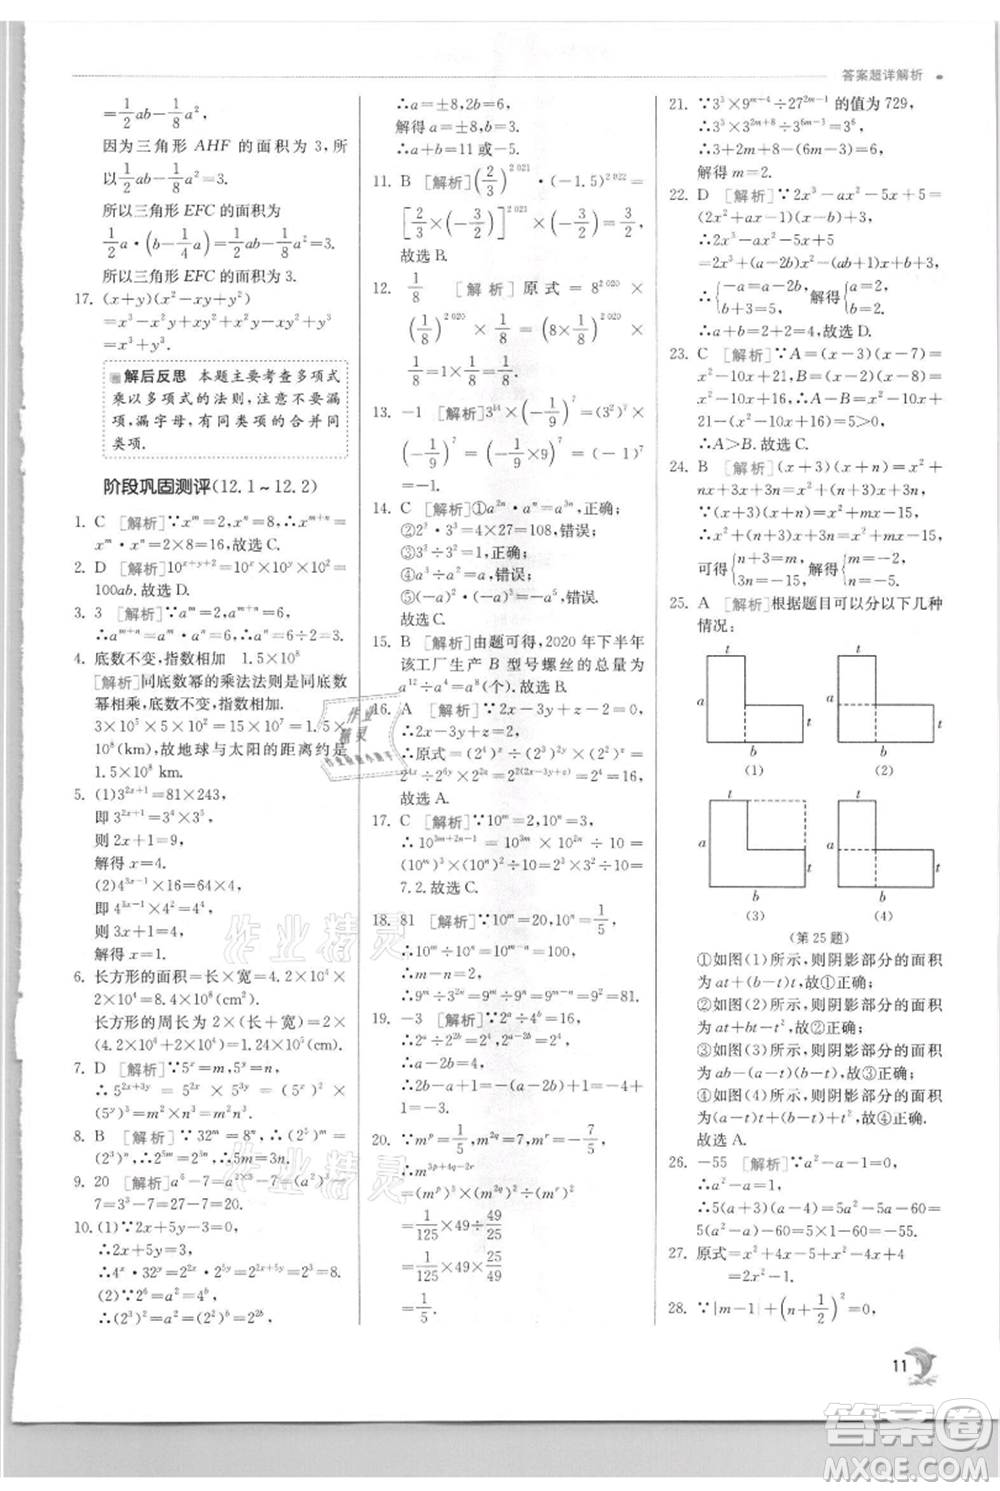 答案超详解析
=1/2ab-1/8a²,
因为三角形 AHF 的面积为 3,所
以1/2ab-1/8a²=3.
所以三角形 EFC 的面积为
1/2a·(b-1/4a)=1/2ab-1/8a²=3.
所以三角形 EFC 的面积为 3.
17. (x+y)(x²-xy+y²)
=x³-x²y+xy²+x²y-xy²+y³
=x³+y³.
解后反思 本题主要考查多项式
乘以多项式的法则,注意不要漏
项,漏字母,有同类项的合并同
类项.
阶段巩固测评(12.1~12.2)
1. C [解析]∵xᵐ=2,xⁿ=8,∴xᵐ⁺ⁿ
=xᵐ·xⁿ=2×8=16,故选 C.
2. D [解析]10ˣ⁺ʸ⁺²=10ˣ·10ʸ·10²=
100ab.故选 D.
3. 3 [解析]∵aᵐ=2,aᵐ⁺ⁿ=6,
∴aᵐ⁺ⁿ=aᵐ·aⁿ=2·aⁿ=6,∴aⁿ=3.
4. 底数不变,指数相加 1.5×10⁸
[解析]同底数幂的乘法法则是同底数
幂相乘,底数不变,指数相加.
3×10⁵×5×10²=15×10⁷=1.5×
10⁸(km),故地球与太阳的距离约是
1.5×10⁸ km.
5. (1)3²ˣ⁺¹=81×243,
即 3²ˣ⁺¹=3⁴×3⁵,
则 2x+1=9,
解得 x=4.
(2)4³ˣ⁻¹×16=64×4,
即 4³ˣ⁻¹×4²=4³×4,
则 3x+1=4,
解得 x=1.
6. 长方形的面积=长×宽=4.2×10⁴×
2×10⁴=8.4×10⁸(cm²).
长方形的周长为 2×(长+宽)=2×
(4.2×10⁴+2×10⁴)=1.24×10⁵(cm).
7. D [解析]∵5ˣ=m,5ʸ=n,
∴5²ˣ⁺³ʸ=5²ˣ×5³ʸ=(5ˣ)²×
(5ʸ)³=m²×n³=m²n³.故选 D.
8. B [解析]∵32ᵐ=8ⁿ,∴(2⁵)ᵐ=
(2³)ⁿ,∴2⁵ᵐ=2³ⁿ,∴5m=3n.故选 B.
9. 20 [解析]a⁶-7=a²ˣ³-7=(a²)³-
7=3³-7=27-7=20.
10. (1)∵2x+5y-3=0,
∴2x+5y=3,
∴4ˣ·32ʸ=2²ˣ·2⁵ʸ=2²ˣ⁺⁵ʸ=2³=8.
(2)∵2⁶=a²=4ᵇ,
∴(2³)²=a²=(2²)ᵇ=2²ᵇ,
∴a=±8,2b=6,
解得 a=±8,b=3.
∴a+b=11 或-5.
11. B [解析](2/3)²⁰²¹·(-1.5)²⁰²²=
[2/3×(-3/2)]²⁰²¹×(-3/2)=3/2.
故选 B.
12. 1/8 [解析]原式=8²⁰²⁰×
(1/8)²⁰²⁰×1/8=(8×1/8)²⁰²⁰×
1/8=1×1/8=1/8.
13. -1 [解析]3¹⁴×(-1/9)⁷=(3²)⁷×
(-1/9)⁷=9⁷×(-1/9)⁷=(-9×1/9)⁷=
-1.
14. C [解析]①a²ⁿ·aⁿ=a³ⁿ,正确;
②2²·3³=4×27=108,错误;
③3²÷3²=1,正确;
④a³÷a²=a,错误;
⑤(-a)²·(-a)³=-a⁵,错误.
故选 C.
15. B [解析]由题可得,2020 年下半年
该工厂生产 B 型号螺丝的总量为
a¹²÷a⁴=a⁸(个).故选 B.
16. A [解析]∵2x-3y+z-2=0,
∴2x-3y+z=2,
∴原式=(2⁴)ˣ÷(2³)²ʸ×(2²)ᶻ=
2⁴ˣ÷2⁶ʸ×2²ᶻ=2²⁽²ˣ⁻³ʸ⁺ᶻ⁾=2⁴=16,
故选 A.
17. C [解析]∵10ᵐ=2,10ⁿ=3,
∴10³ᵐ⁺²ⁿ⁻¹=10³ᵐ×10²ⁿ÷10=
(10ᵐ)³×(10ⁿ)²÷10=2³×3²÷10=
7.2.故选 C.
18. 81 [解析]∵10ᵐ=20,10ⁿ=1/5,
∴10ᵐ÷10ⁿ=10ᵐ⁻ⁿ=10²,
∴m-n=2,
∴9ᵐ÷3²ⁿ=9ᵐ÷9ⁿ=9ᵐ⁻ⁿ=9²=81.
19. -3 [解析]∵2ᵃ÷4ᵇ=16,
∴2ᵃ÷2²ᵇ=2⁴,2ᵃ⁻²ᵇ=2⁴,
∴a-2b=4,
∴2b-a+1=-(a-2b)+1=-4+1=
-3.
20. ∵mᵖ=1/5,m²ᑫ=7,mʳ=-7/5,
∴m³ᵖ⁺⁴ᑫ⁻²ʳ
=(mᵖ)³×(m²ᑫ)²÷(mʳ)²
=1/125×49÷49/25
=1/125×49×25/49
=1/5.
21. ∵3³×9ᵐ⁻⁴÷27²ᵐ⁻¹的值为 729,
∴3³×3²ᵐ⁻⁸÷3⁶ᵐ⁻³=3⁶,
∴3+2m+8-6m+3=6,
解得 m=2.
22. D [解析]∵2x³-ax²-5x+5=
(2x²+ax-1)(x-b)+3,
∴2x³-ax²-5x+5
=2x³+(a-2b)x²-(ab+1)x+b+3,
∴{-a=a-2b, b+3=5, 解得{a=2, b=2.
∴a+b=2+2=4,故选 D.
23. C [解析]∵A=(x-3)(x-7)=
x²-10x+21,B=(x-2)(x-8)=
x²-10x+16,∴A-B=x²-10x+
21-(x²-10x+16)=5>0,
∴A>B.故选 C.
24. B [解析](x+3)(x+n)=x²+
(3+n)x+3n,
∵(x+3)(x+n)=x²+mx-15,
∴x²+(3+n)x+3n=x²+mx-15,
可得{n+3=m, 3n=-15, 解得{m=-2, n=-5.
25. A [解析]根据题目可以分以下几种
情况:
t t
a a
t t
b b
(1) (2)
t t
a a
t t
b b
(3) (4)
(第 25 题)
①如图(1)所示,则阴影部分的面积
为 at+(b-t)t,故①正确;
②如图(2)所示,则阴影部分的面积
为 at+bt-t²,故②正确;
③如图(3)所示,则阴影部分的面积
为 ab-(a-t)(b-t),故③正确;
④如图(4)所示,则阴影部分的面积
为(a-t)t+(b-t)t+t²,故④正确.
故选 A.
26. -55 [解析]∵a²-a-1=0,
∴a²-a=1,
∴5(a+3)(a-4)=5(a²-a-12)=
5(a²-a)-60=5×1-60=-55.
27. 原式=x²+4x+5x+20+x²-9x-21
=2x²-1.
28. ∵|m-1|+(n+1/2)²=0,
11
作业精灵
作业精灵
作业精灵
答案圈
MXQE.COM